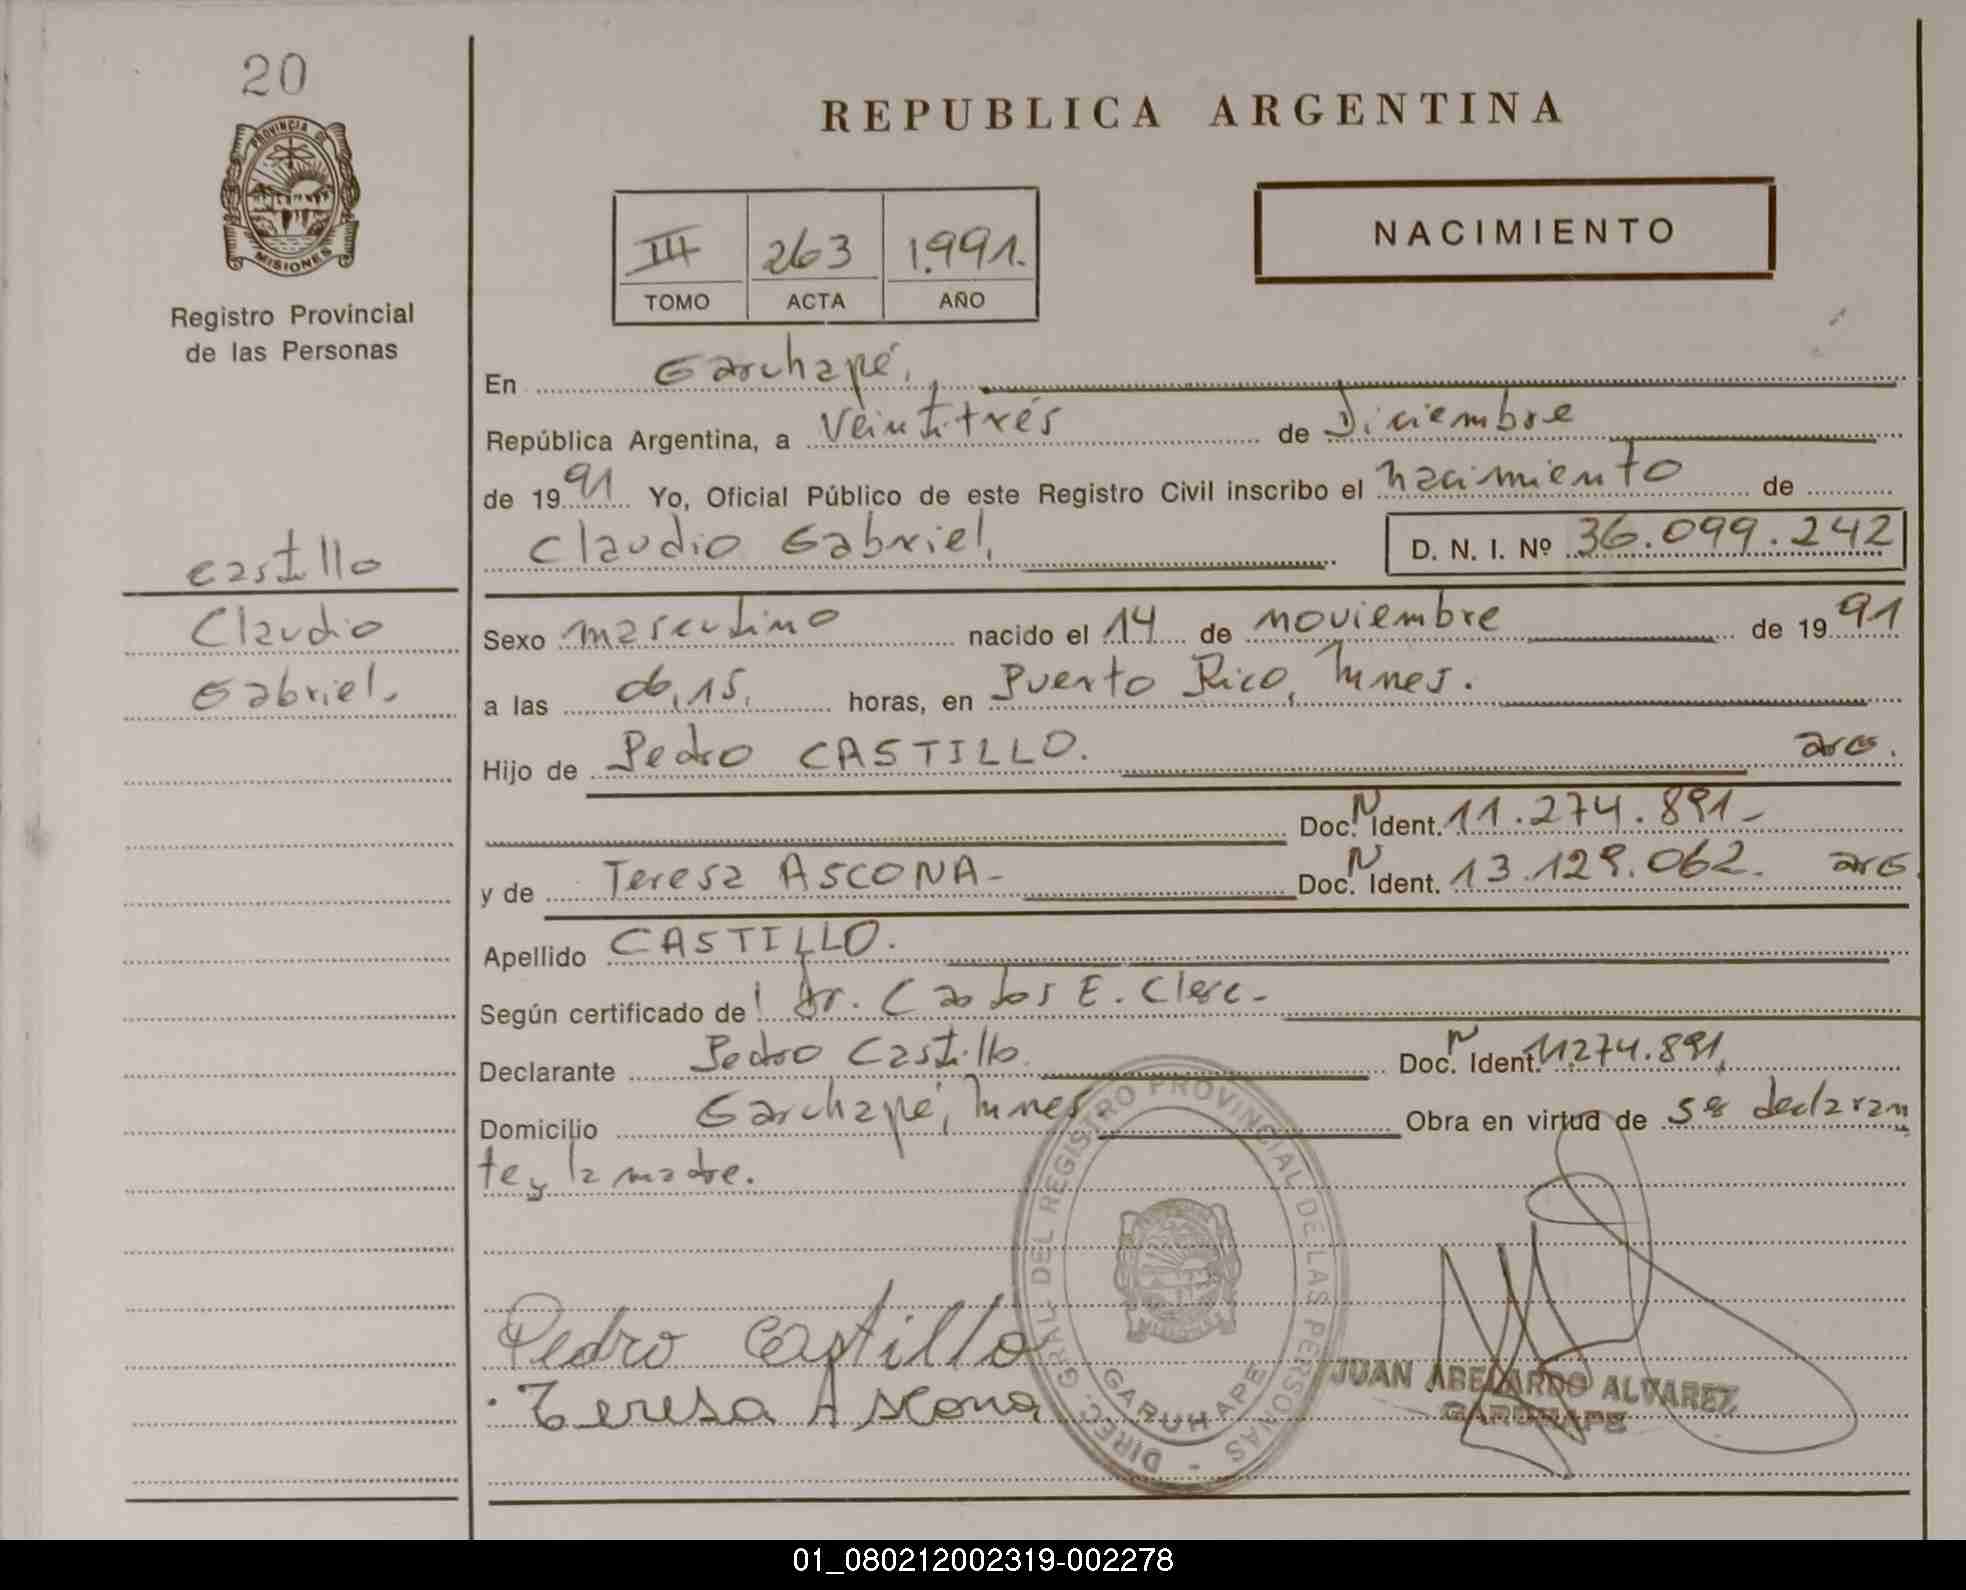 20
PROVINCIA DE
MISIONES
Registro Provincial
de las Personas
REPUBLICA ARGENTINA
NACIMIENTO
III 263 1.991.
TOMO ACTA AÑO
En Garuhapé,
República Argentina, a Veintitrés de Diciembre
de 1991 Yo, Oficial Público de este Registro Civil inscribo el nacimiento de
Claudio Gabriel, D. N. I. Nº 36.099.242
Castillo
Claudio
Gabriel.
Sexo masculino nacido el 14 de noviembre de 1991
a las 06,15, horas, en Puerto Rico, Mnes.
Hijo de Pedro CASTILLO. arg.
Doc. N Ident. 11.274.891-
y de Teresa ASCONA- Doc. N Ident. 13.129.062. arg.
Apellido CASTILLO.
Según certificado de Dr. Carlos E. Clerc-
Declarante Pedro Castillo. Doc. N Ident. 11.274.891,
Domicilio Garuhapé, Mnes. Obra en virtud de ser declaran
te y la madre.
Pedro Castillo
Teresa Ascona
DIREC. GRAL. DEL REGISTRO PROVINCIAL DE LAS PERSONAS -
GARUHAPE
JUAN ABELARDO ALVAREZ
GARUHAPE
01_080212002319-002278